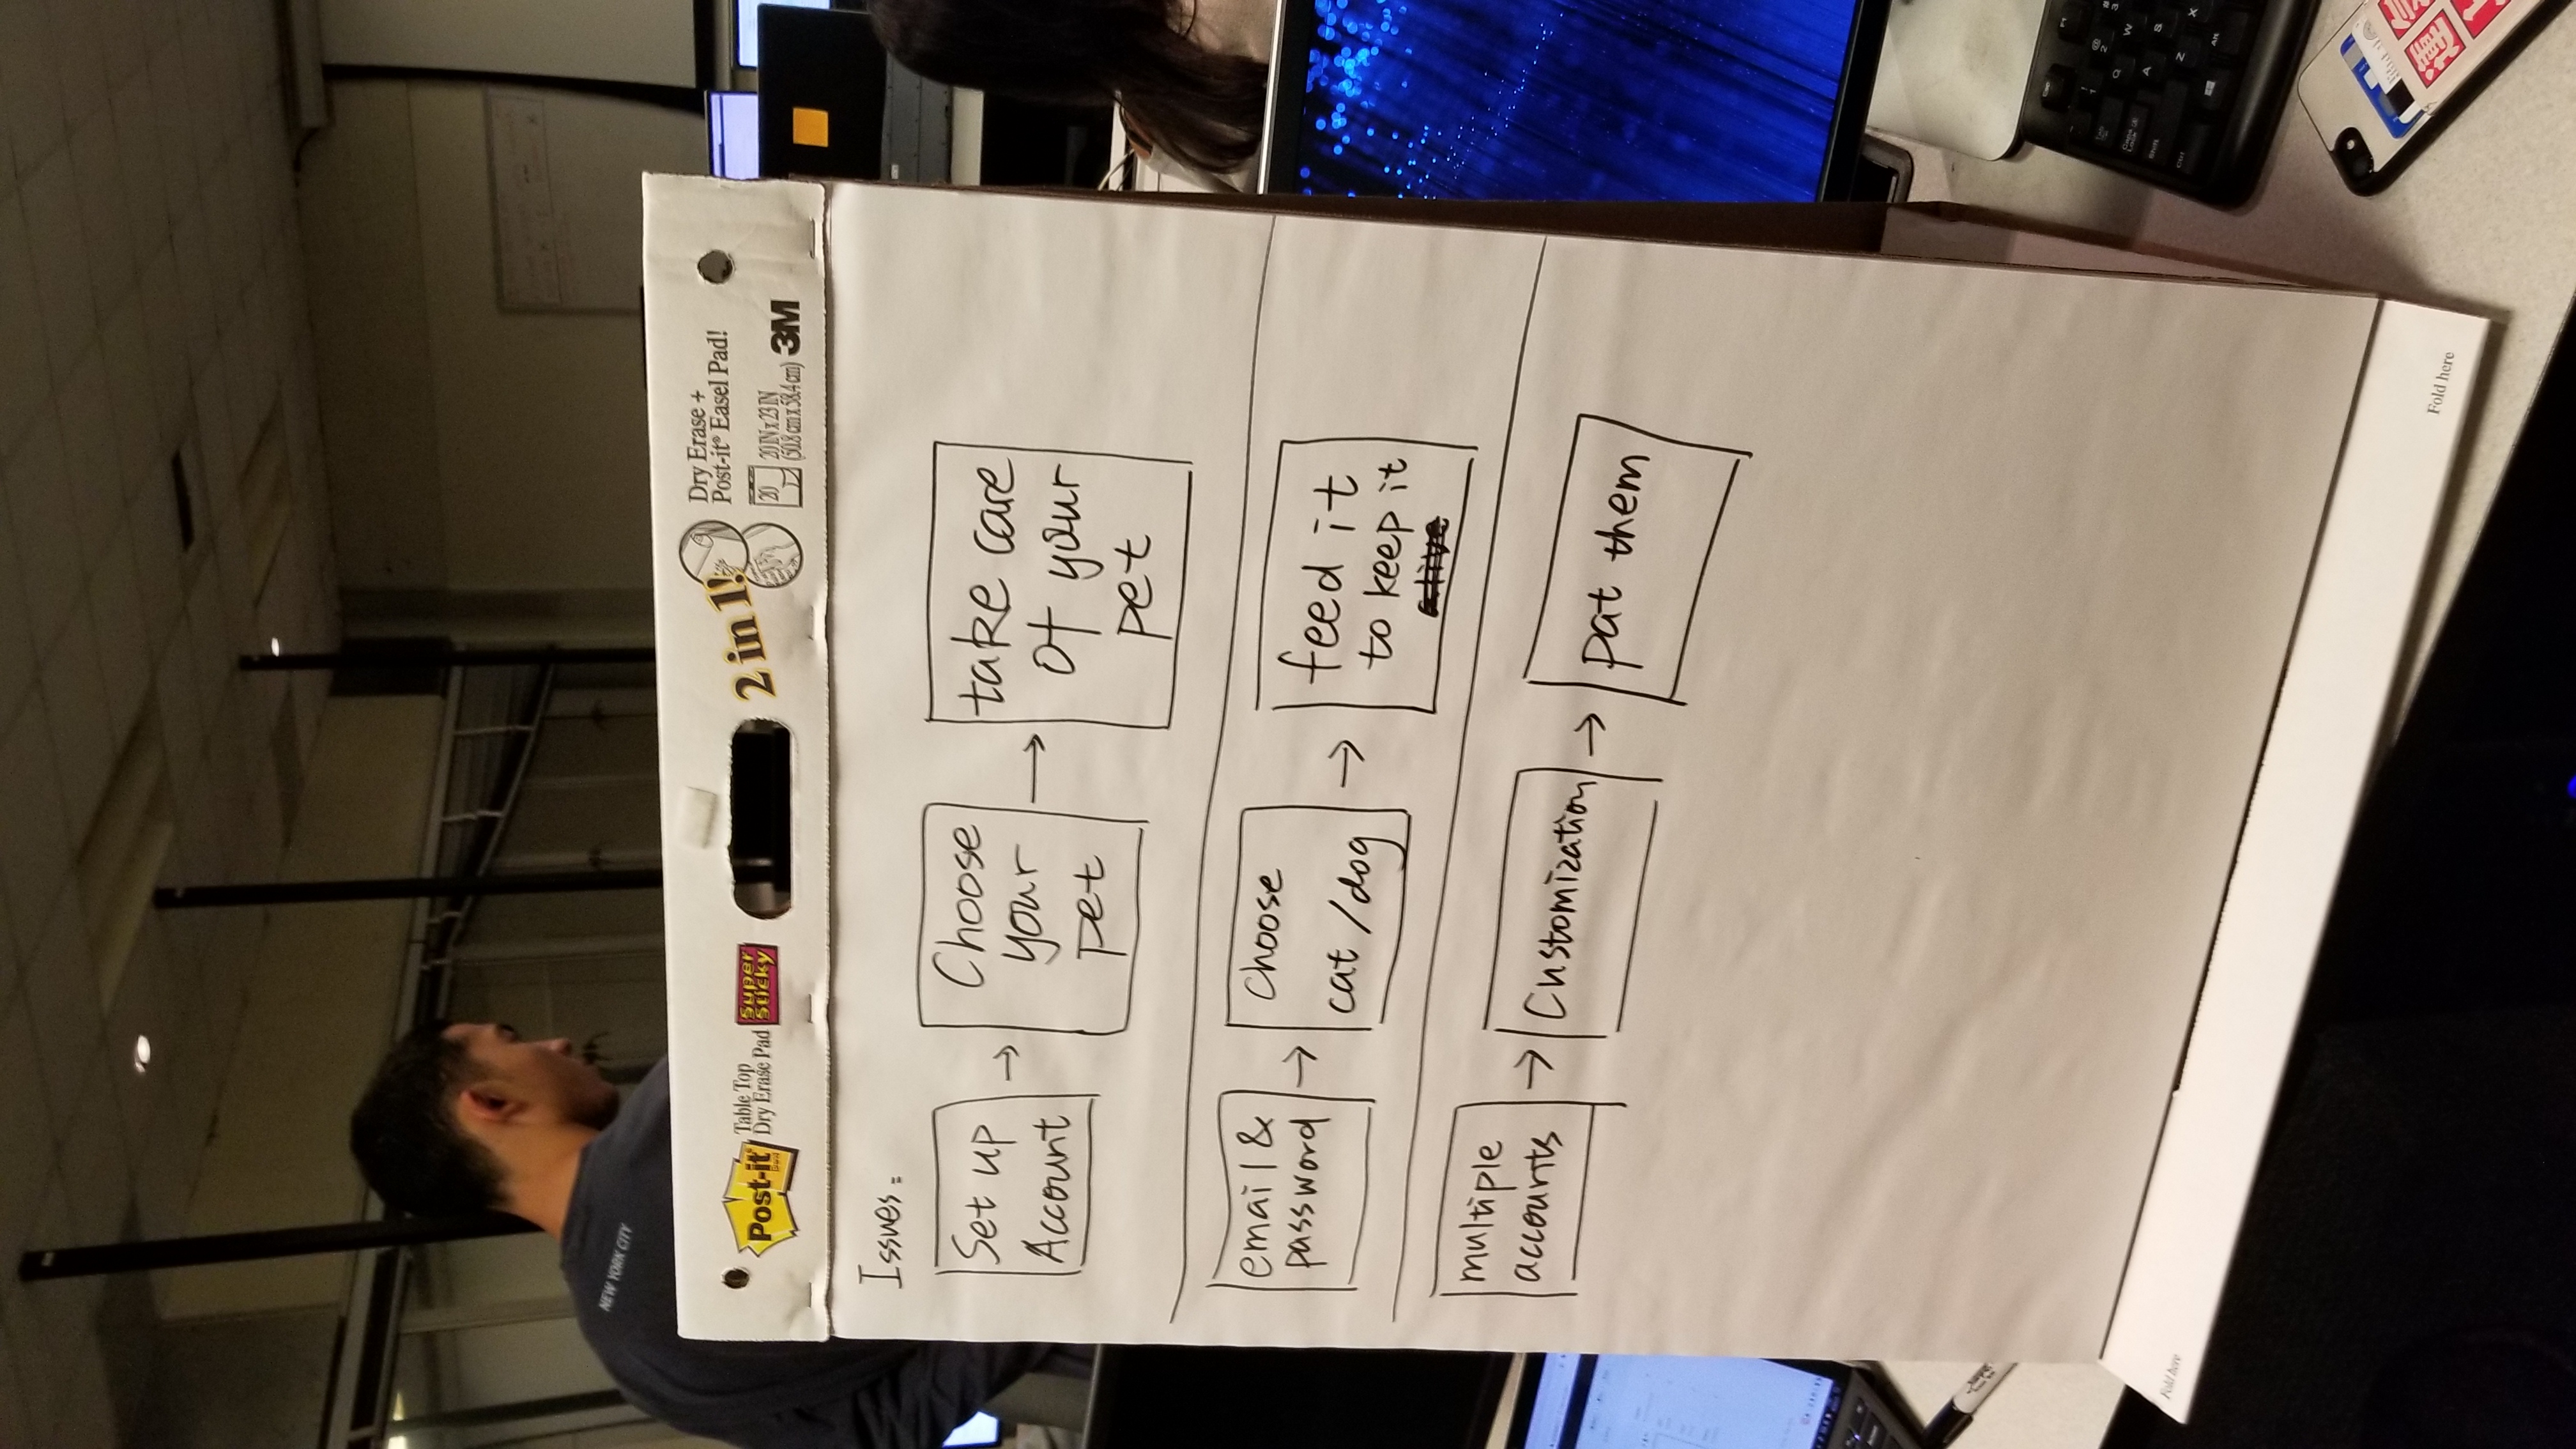 NEW YORK CITY
Post-it
Table Top
Dry Erase Pad
Super
Sticky
2 in 1!
Dry Erase +
Post-it® Easel Pad!
20
20 IN x 23 IN
(50.8 cm x 58.4 cm)
3M
Issues:
Set up
Account
→
Choose
your
pet
→
take care
of your
pet
email &
password
→
Choose
cat / dog
→
feed it
to keep it
alive
multiple
accounts
→
Customization
→
pat them
Fold here
Fold here